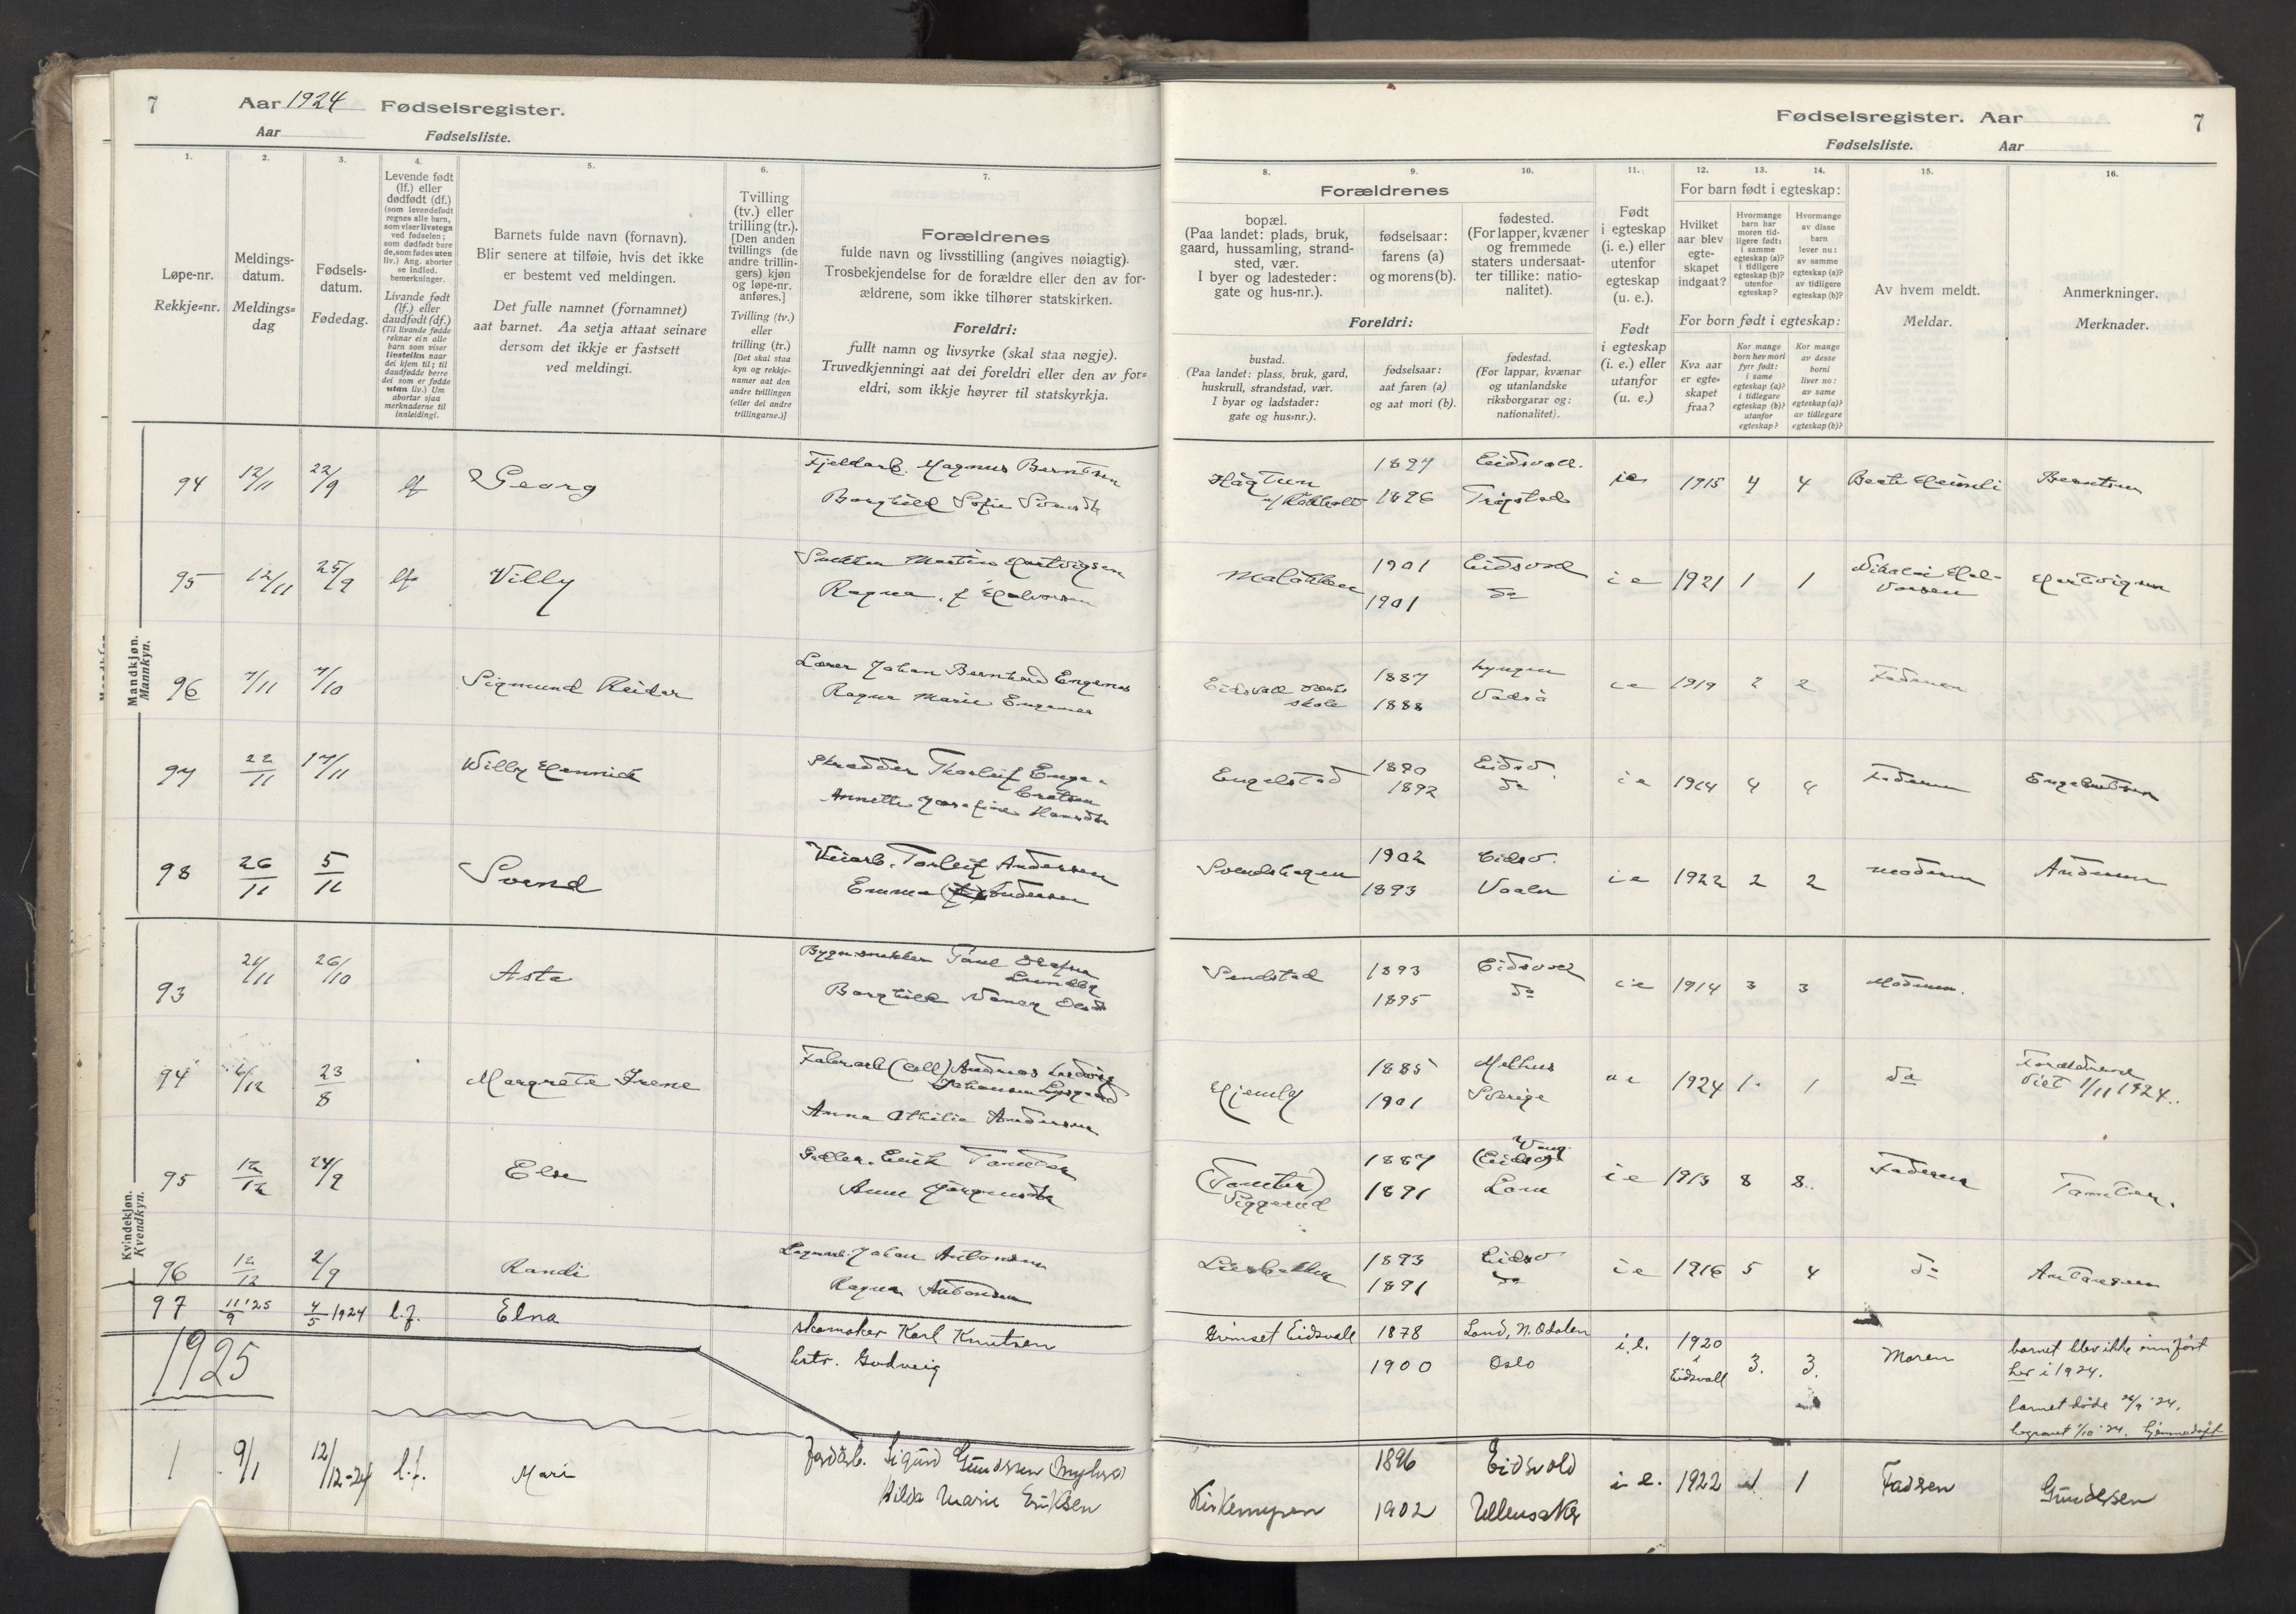 7
Aar 1924 Fødselsregister.
Aar
Fødselsliste.
1.
2.
3.
4.
5.
6.
7.
Løpe-nr.
Rekkje=nr.
Meldings-
datum.
Meldings=
dag
Fødsels-
datum.
Fødedag.
Levende født
(lf.) eller
dødfødt (df.)
(som levendefødt
regnes alle barn,
som viser livstegn
ved fødselen;
som dødfødt bare
de, som fødes uten
liv.) Ang. aborter
se indled.
bemerkninger.
Livande født
(lf.) eller
daudfødt (df.)
(Til livande fødde
reknar ein alle
barn som viser
livsteikn naar
dei kjem til; til
daudfødde berre
dei som er fødde
utan liv.) Um
abortar sjaa
merknaderne til
innleidingi.
Barnets fulde navn (fornavn).
Blir senere at tilføie, hvis det ikke
er bestemt ved meldingen.
Det fulle namnet (fornamnet)
aat barnet. Aa setja attaat seinare
dersom det ikkje er fastsett
ved meldingi.
Tvilling
(tv.) eller
trilling (tr.).
[Den anden
tvillings (de
andre trillin-
gers) kjøn
og løpe-nr.
anføres.]
Tvilling (tv.)
eller
trilling (tr.)
[Det skal staa
kyn og rekkje-
numer aat den
andre tvillingen
(eller dei andre
trillingarne.)]
Forældrenes
fulde navn og livsstilling (angives nøiagtig).
Trosbekjendelse for de forældre eller den av for-
ældrene, som ikke tilhører statskirken.
Foreldri:
fullt namn og livsyrke (skal staa nøgje).
Truvedkjenningi aat dei foreldri eller den av for=
eldri, som ikkje høyrer til statskyrkja.
Fødselsregister. Aar
7
Fødselsliste.
Aar
8.
9.
10.
11.
12.
13.
14.
15.
16.
Forældrenes
bopæl.
(Paa landet: plads, bruk,
gaard, hussamling, strand-
sted, vær.
I byer og ladesteder:
gate og hus-nr.).
fødselsaar:
farens (a)
og morens (b).
fødested.
(For lapper, kvæner
og fremmede
staters undersaat-
ter tillike: natio-
nalitet).
Foreldri:
bustad.
(Paa landet: plass, bruk, gard,
huskrull, strandstad, vær.
I byar og ladstader:
gate og hus=nr.).
fødselsaar:
aat faren (a)
og aat mori (b).
fødestad.
(For lappar, kvænar
og utanlandske
riksborgarar og:
nationalitet).
Født
i egteskap
(i. e.) eller
utenfor
egteskap
(u. e.).
Født
i egteskap
(i. e.) eller
utanfor
(u. e.)
For barn født i egteskap:
Hvilket
aar blev
egte-
skapet
indgaat?
Hvormange
barn har
moren tid-
ligere født:
i samme
egteskap (a)?
i tidligere
egteskap (b)?
utenfor
egteskap?
Hvormange
av disse
barn
lever nu:
av samme
egteskap (a)?
av tidligere
egteskap (b)?
For born født i egteskap:
Kva aar
er egte=
skapet
fraa?
Kor mange
born hev mori
fyrr født:
i same
egteskap (a)?
i tidlegare
egteskap (b)?
utanfor
egteskap?
Kor mange
av desse
borni
liver no:
av same
egteskap (a)?
av tidlegare
egteskap (b)?
Av hvem meldt.
Meldar.
Anmerkninger.
Merknader.
Mandkjøn.
Mannkyn.
94 12/11 22/9 lf Georg Fjeldarb. Magnus Berntsen 1897 Eidsvoll. ie 1915 4 4 Berntsen
Borghild Sofie 1896 Trøgstad
95 12/11 25/9 lf Villy Snekker Martin Hartvigsen 1901 Eidsvold ie 1921 1 1 Nikolai Hal- Hartvigsen
Ragna, f Halvorsen 1901 do vorsen
96 7/11 7/10 Sigmund Reidar Lærer Johan Bernhard Engenes Eidsvoll 1887 Lyngen ie 1919 2 2 Faderen
Ragna Marie Engenes skole 1888 Vadsø
97 22/11 17/11 Willy Henrick Skrædder Thorleif Enge- Engelstad 1890 Eidsv. ie 1914 4 4 Faderen Engebretsen
bretsen
Annette Josefine Hansdtr 1892 do
98 26/11 5/11 Svend Veiarb. Torleif Andersen Svendshagen 1902 Eidsv. ie 1922 2 2 Moderen Andersen
Emma Andersen 1893 Vaaler
Kvindekjøn.
Kvendkyn.
93 24/11 26/10 Asta Bygn.snekker Paul Olafsen Sendstad 1893 Eidsvold ie 1914 3 3 Moderen.
Lundby
Borghild Nancy 1895 do
94 6/12 23/8 Margrete Irene Fabrarb (Cell) Andreas Ludvig Hjemly 1885 Melhus 1924 1 1 do Forældrene
Johansen viet 1/11 1924.
Anna Othilie Andersen 1901 Sverige
95 12/12 24/9 Else Erik Tømter (Tømter) 1887 (Eidsv) Vang ie 1913 8 8 Faderen Tømter.
Anne Jørgensdtr Siggerud 1891 Lom
96 12/12 2/9 Randi Johan Antonsen 1893 Eidsv ie 1916 5 4 do Antonsen
Ragna Antonsen 1891 do
97 11/9 '25 4/5 1924 l.f. Elna skomaker Karl Knutsen Grimset Eidsvoll 1878 Sand, N. Odalen i.e. 1920 3. 3. Moren barnet blev ikke innført
hstr. Gudveig 1900 Oslo i Eidsvoll her i 1924.
barnet døde 26/9 '24.
begravet 1/10 '24. hjemmedøpt
1925
1 9/1 12/12-24 l.f. Mari Jordarb. Sigurd Gundersen Kirkemyren 1896 Eidsvold i e. 1922 1 1 Faderen Gundersen
Hilda Marie Eriksen 1902 Ullensaker